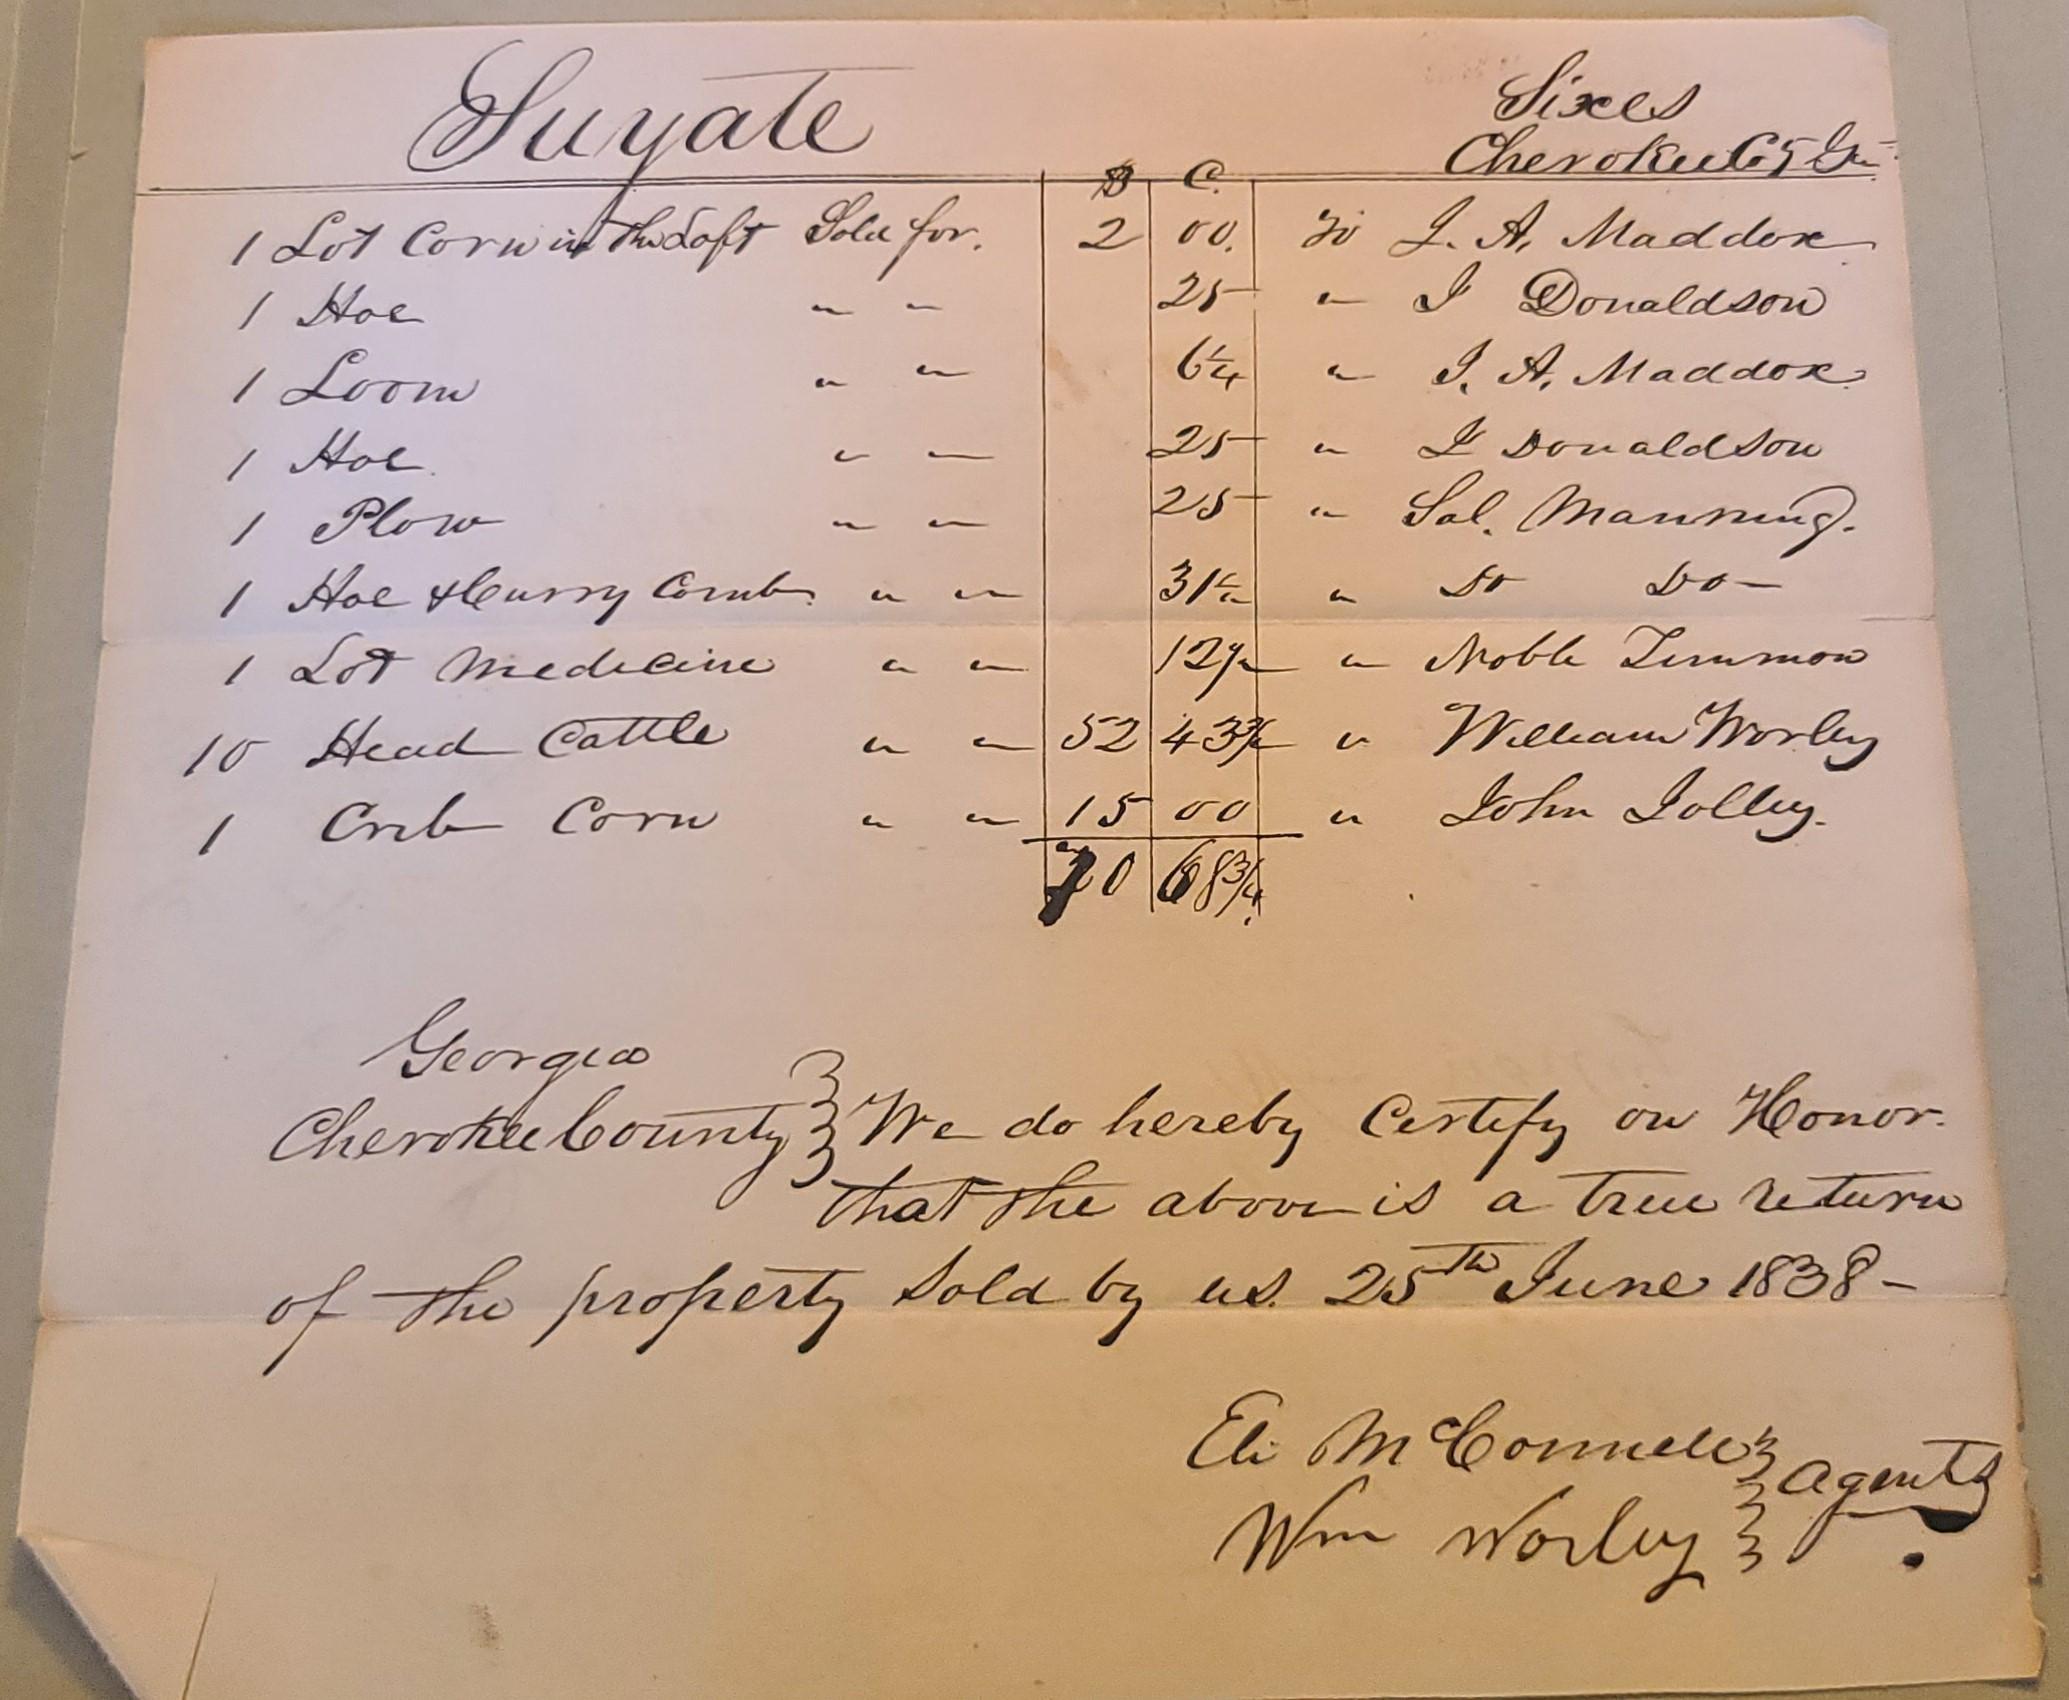 Suyate
Sixes
Cherokee Co Ga
$ C.
1 Lot Corn in the Loft Sold for. 2 00. To J. A. Maddox
1 Hoe " " 25 " J Donaldson
1 Loom " " 6¼ " J. A. Maddox
1 Hoe " " 25 " J Donaldson
1 Plow " " 25 " Sal. Manning.
1 Hoe & Curry Comb " " 31¼ " Do Do
1 Lot Medicine " " 12½ " Noble Timmon
10 Head Cattle " " 52 43¾ " William Worley
1 Crib Corn " " 15 00 " John Jolley.
70 68¾
Georgia
Cherokee County } We do hereby Certify on Honor.
that the above is a true return
of the property sold by us. 25th June 1838 -
Eli McConnell } Agents
Wm Worley }